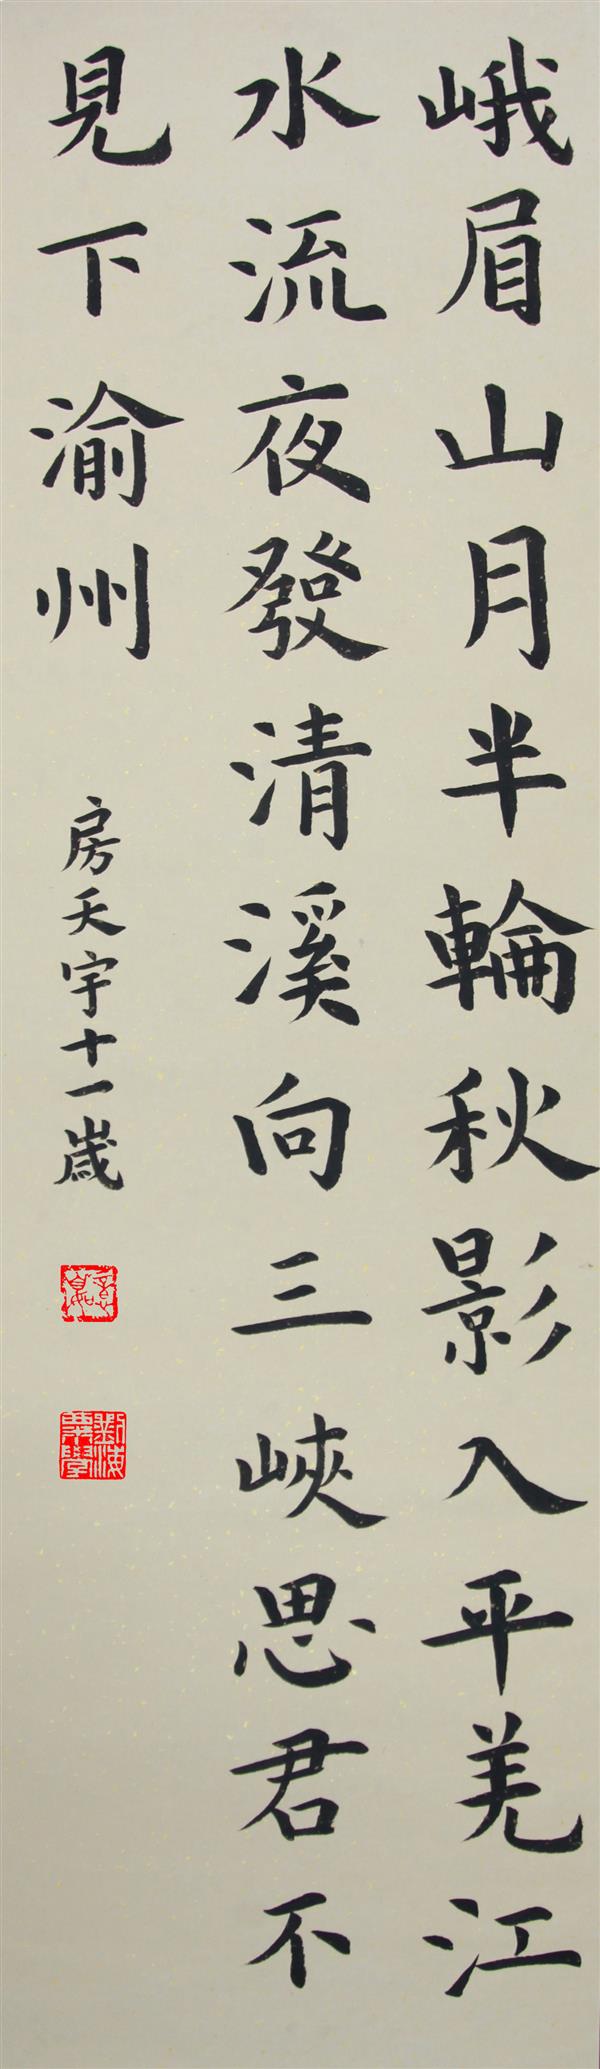 峨眉山月半輪秋影入平羌江
水流夜發清溪向三峽思君不
見下渝州
房天宇十一歲